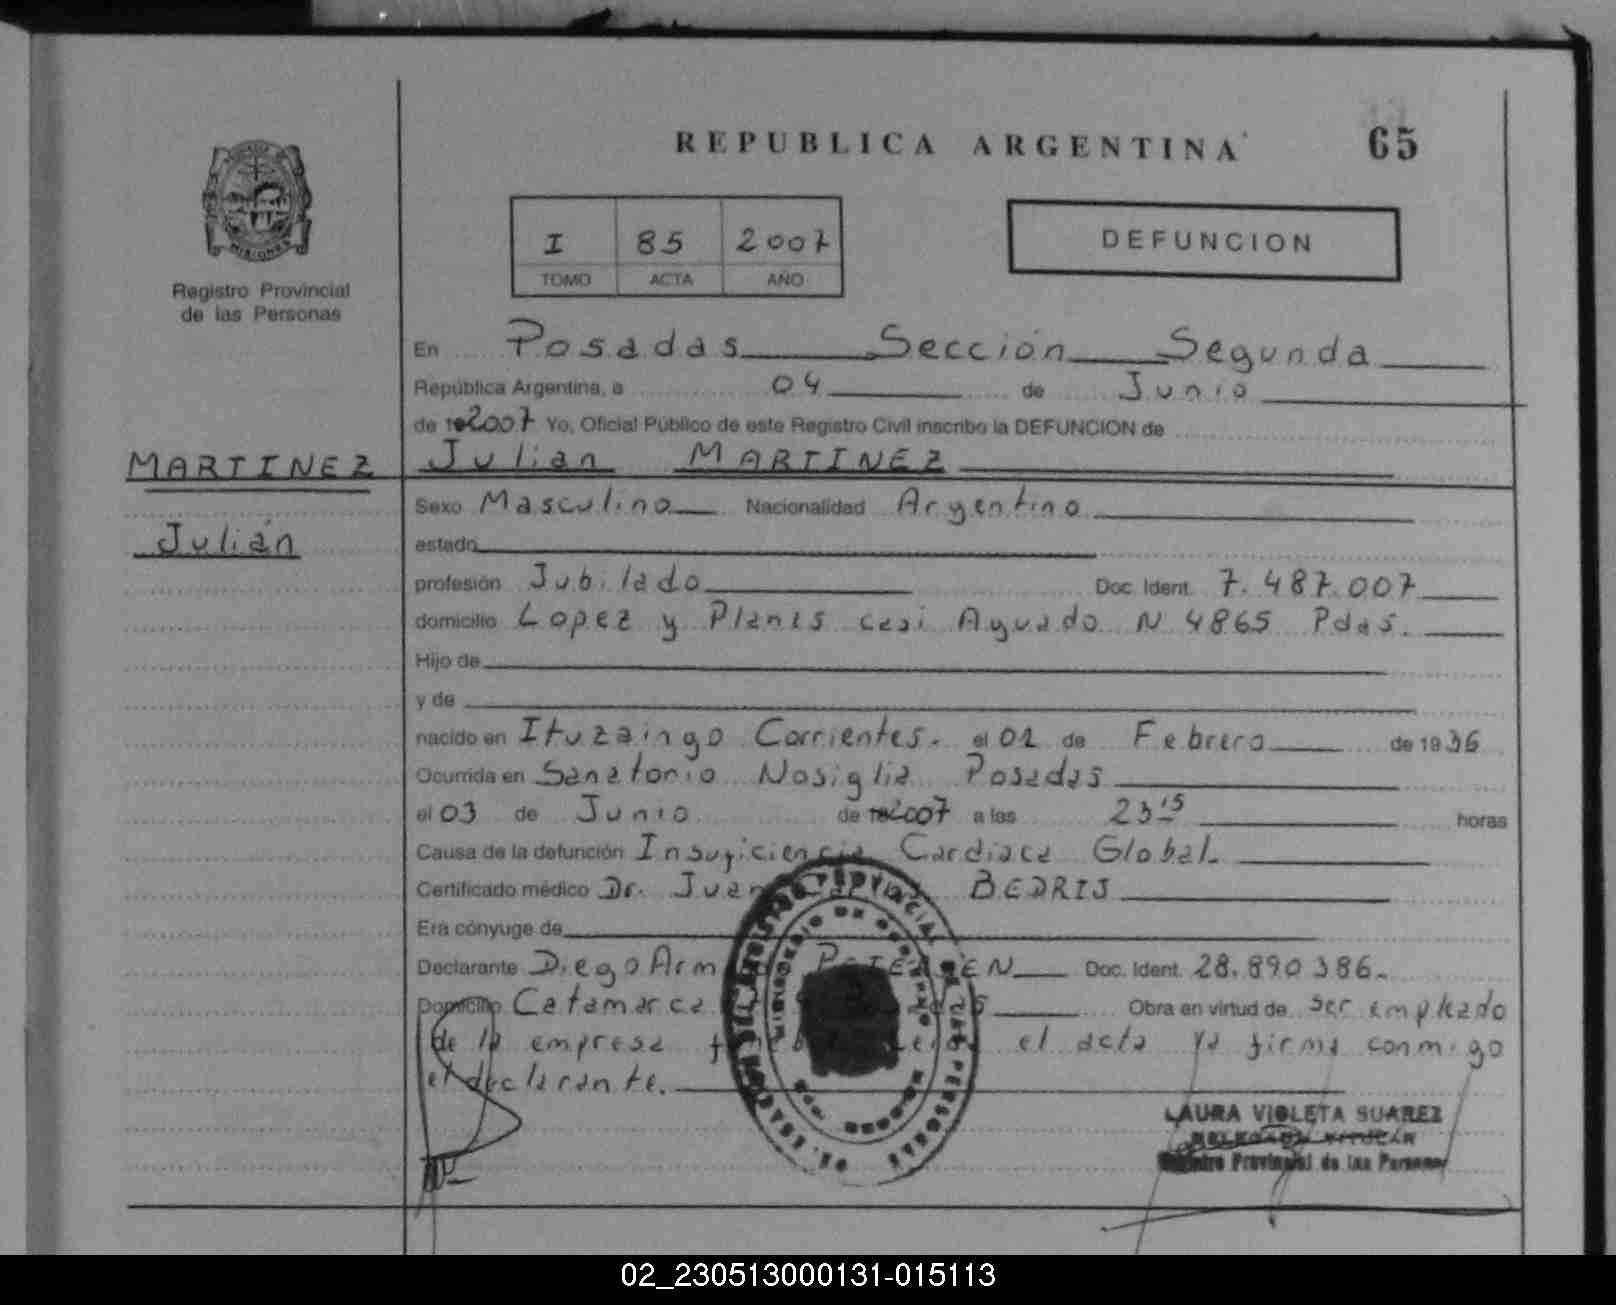 REPUBLICA ARGENTINA
65
MISIONES
Registro Provincial
de las Personas
I 85 2007
TOMO ACTA AÑO
DEFUNCION
En Posadas Sección Segunda
República Argentina, a 04 de Junio
de 2007 Yo, Oficial Público de este Registro Civil inscribo la DEFUNCION de
MARTINEZ
Julián MARTINEZ
Sexo Masculino Nacionalidad Argentino
Julián
estado
profesión Jubilado Doc. Ident. 7.487.007
domicilio Lopez y Planes casi Aguado N 4865 Pdas.
Hijo de
y de
nacido en Ituzaingo Corrientes. el 01 de Febrero de 1936
Ocurrida en Sanatorio Nosiglia Posadas
el 03 de Junio de 2007 a las 23 15 horas
Causa de la defunción Insuficiencia Cardiaca Global.
Certificado médico Dr. Juan BEDRIJ
Era cónyuge de
Declarante Diego Doc. Ident. 28.890.386.
Domicilio Catamarca Obra en virtud de ser empleado
de la empresa el acta la firma conmigo
el declarante.
LAURA VIOLETA SUAREZ
Registro Provincial de las Personas
02_230513000131-015113